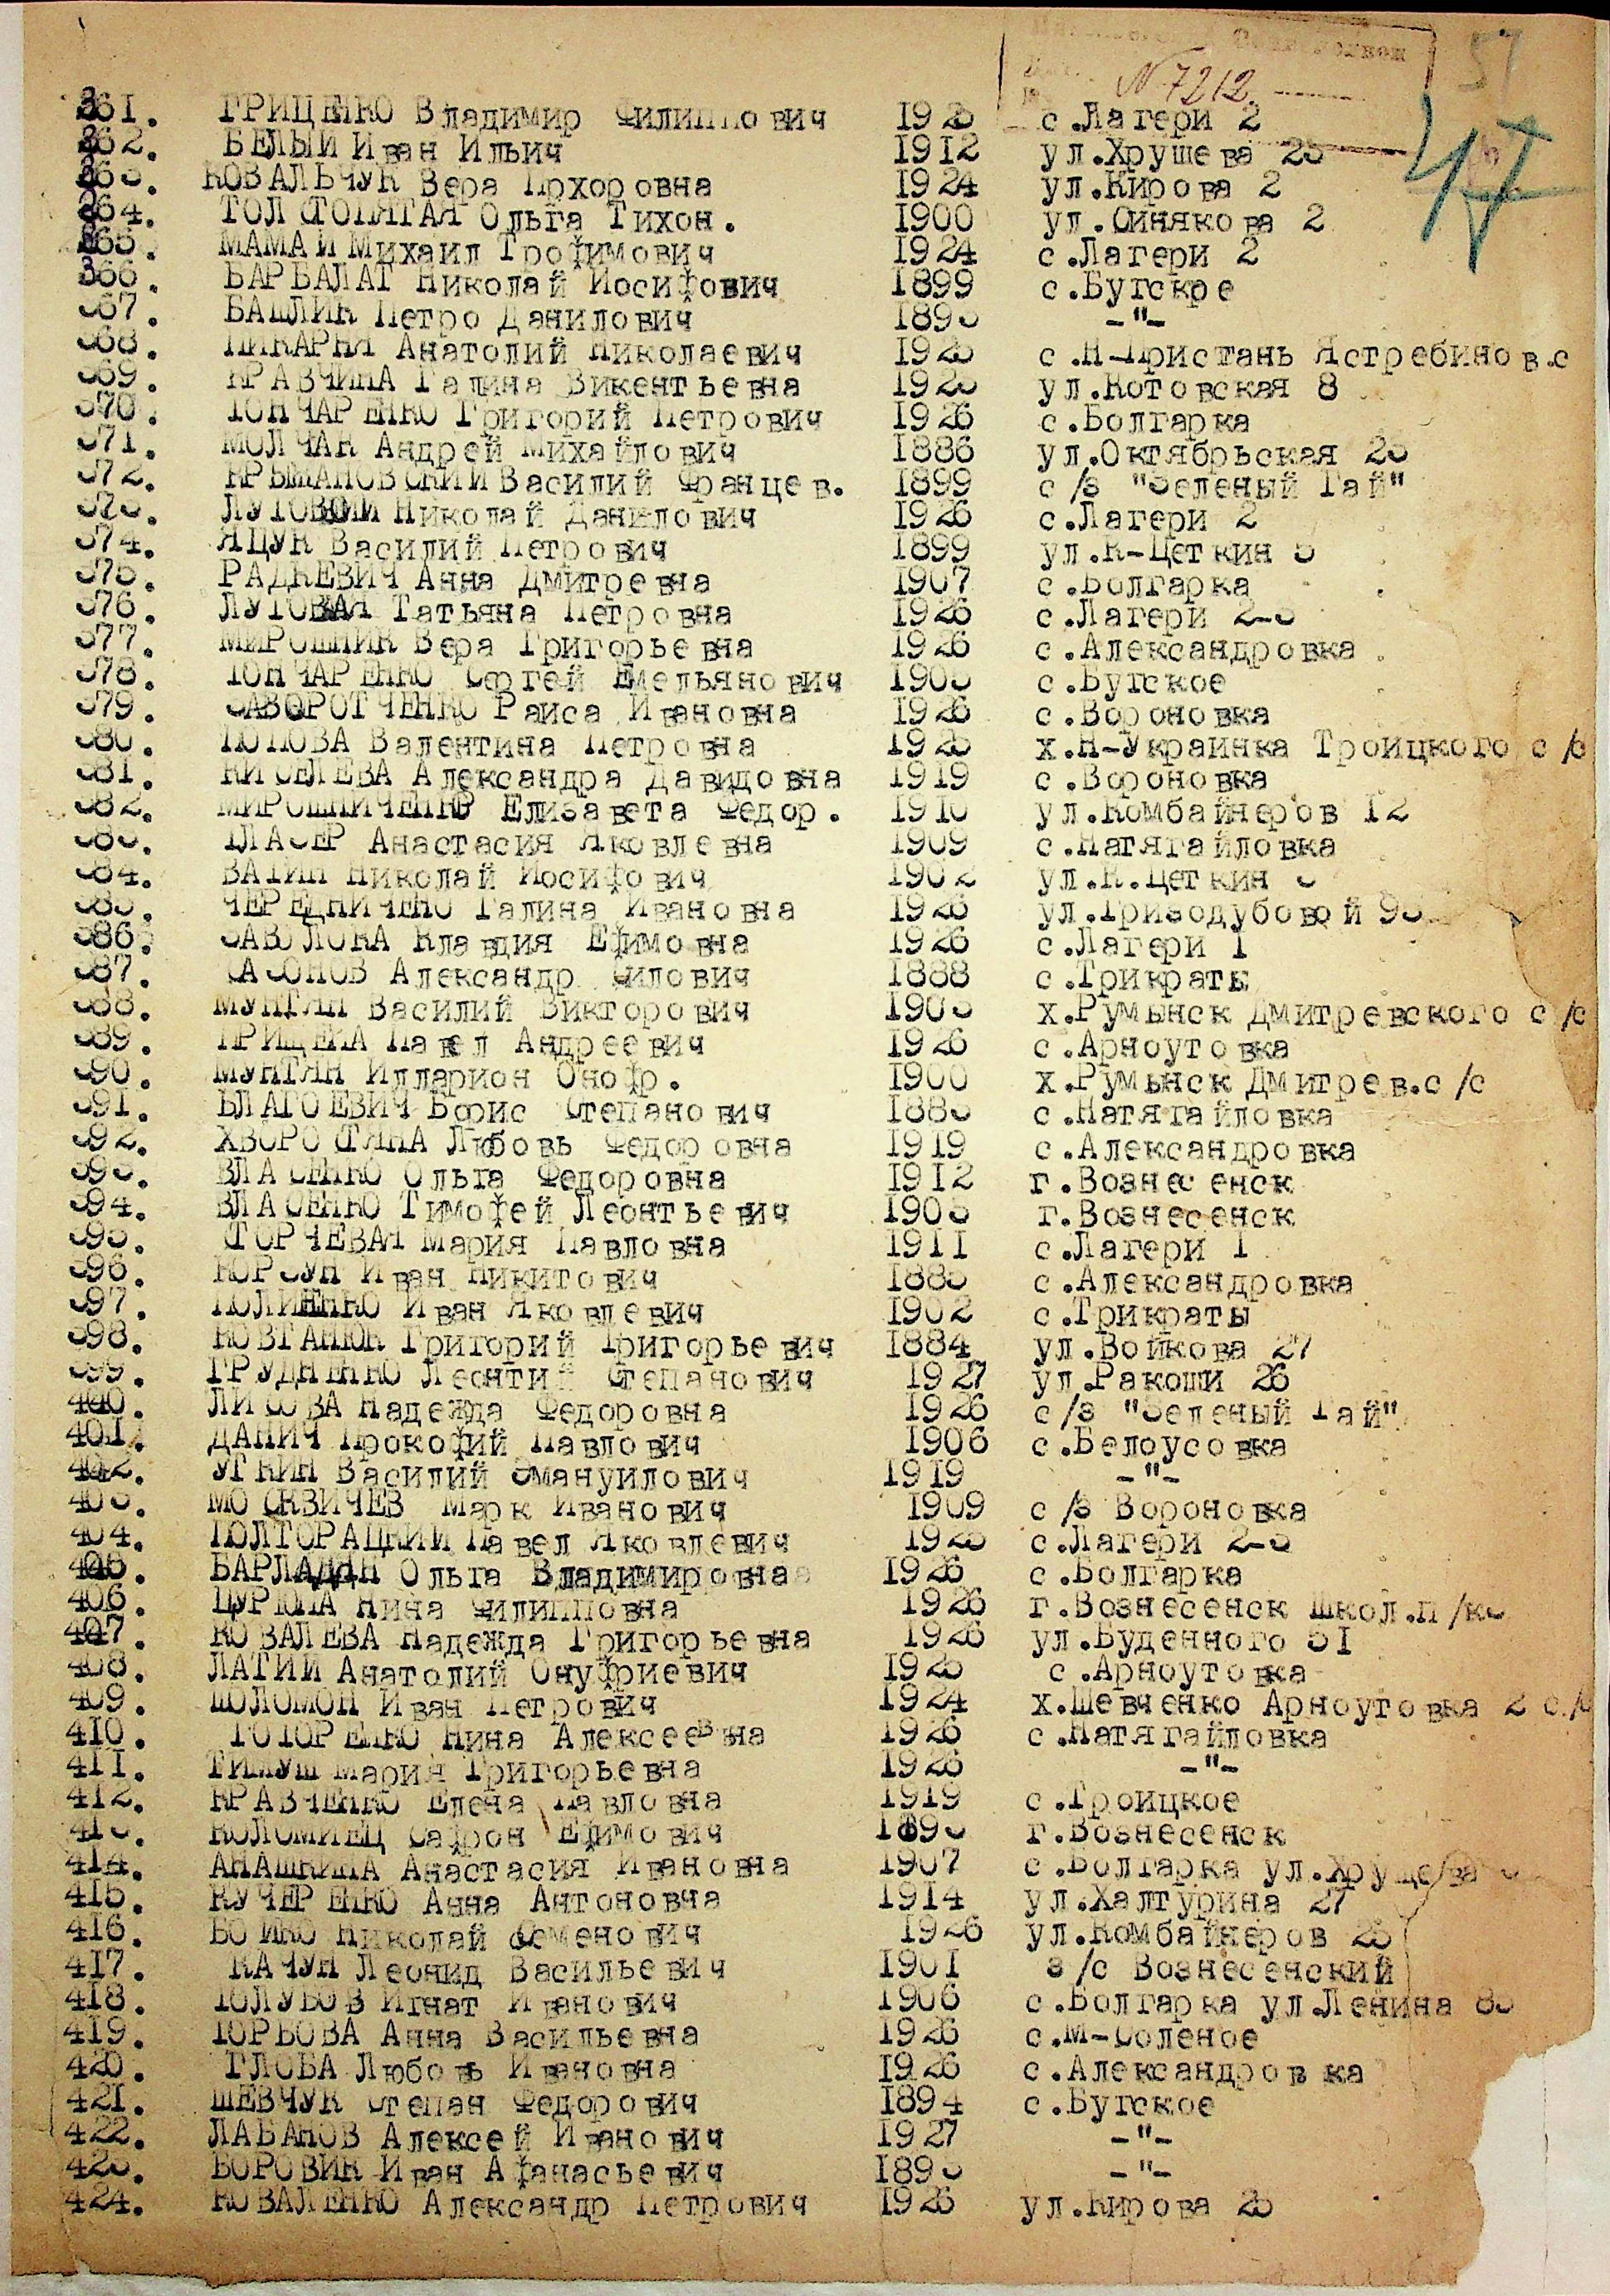 57
№ 7212
47
361. ГРИЦЕНКО Владимир Филиппович 1925 с.Лагери 2
362. БЕЛЫЙ Иван Ильич 1912 ул.Хрушева
363. КОВАЛЬЧУК Вера Прхоровна 1924 ул.Кирова 2
364. ТОЛСТОПЯТАЯ Ольга Тихон. 1900 ул.Синякова 2
365. МАМАЙ Михаил Трофимович 1924 с.Лагери 2
366. БАРБАЛАТ Николай Иосифович 1899 с.Бугское
367. БАШЛИК Петро Данилович -"-
368. ПИКАРНЯ Анатолий Николаевич с.Н-Пристань Ястребинов.с
369. КРАВЧИНА Галина Викентьевна ул.Котовская 8
370. ГОНЧАРЕНКО Григорий Петрович 1926 с.Болгарка
371. МОЛЧАН Андрей Михайлович 1886 ул.Октябрьская
372. КРЫЖАНОВСКИЙ Василий Францев. 1899 с/з "Зеленый Гай"
373. ЛУГОВОЙ Николай Данилович 1926 с.Лагери 2
374. ЯЦУК Василий Петрович 1899 ул.К-Цеткин
375. РАДКЕВИЧ Анна Дмитревна 1907 с.Болгарка
376. ЛУГОВАЯ Татьяна Петровна 1926 с.Лагери 2-3
377. МИРОШНИК Вера Григорьевна 1926 с.Александровка
378. ГОНЧАРЕНКО Сергей Емельянович с.Бугское
379. ЗАВОРОТЧЕНКО Раиса Ивановна 1926 с.Вороновка
380. ПОПОВА Валентина Петровна х.Н-Украинка Троицкого с/с
381. КИСЕЛЕВА Александра Давидовна 1919 с.Вороновка
382. МИРОШНИЧЕНКО Елизавета Федор. 1910 ул.Комбайнеров 12
383. ГЛАЗЕР Анастасия Яковлевна 1909 с.Натягайловка
384. ВАГИН Николай Иосифович 1902 ул.К.Цеткин
385. ЧЕРЕДНИЧЕНО Галина Ивановна 1926 ул.Гризодубовой
386. ЗАВОЛОКА Клавдия Ефимовна 1926 с.Лагери 1
387. САЗОНОВ Александр Силович 1888 с.Трикраты
388. МУНТЯН Василий Викторович х.Румынск Дмитревского с/с
389. ГРИЩЕНА Павел Андреевич 1926 с.Арноутовка
390. МУНТЯН Илларион Онофр. 1900 х.Румынск Дмитрев.с/с
391. БЛАГОЕВИЧ Борис Степанович с.Натягайловка
392. ХВОРОСТЯНА Любовь Федоровна 1919 с.Александровка
393. ВЛАСЕНКО Ольга Федоровна 1912 г.Вознесенск
394. ВЛАСЕНКО Тимофей Леонтьевич г.Вознесенск
395. СТОРЧЕВАЯ Мария Павловна 1911 с.Лагери 1
396. КОРЗУН Иван Никитович с.Александровка
397. ПОЛИЕНКО Иван Яковлевич 1902 с.Трикраты
398. КОВТАНЮК Григорий Григорьевич 1884 ул.Войкова 27
399. ГРУДНЕНКО Леонтий Степанович 1927 ул.Ракоши 26
400. ЛИСОВА Надежда Федоровна 1926 с/з "Зеленый Гай"
401. ДАНИЧ Прокофий Павлович 1906 с.Белоусовка
402. УТКИН Василий Эмануилович 1919 -"-
403. МОСКВИЧЕВ Марк Иванович 1909 с/з Вороновка
404. ПОЛТОРАЦКИЙ Павел Яковлевич с.Лагери 2-3
405. БАРЛАДЯН Ольга Владимировна 1926 с.Болгарка
406. ЦУРЮПА Нина Филипповна 1926 г.Вознесенск школ.п/к
407. КОВАЛЕВА Надежда Григорьевна 1926 ул.Буденного 51
408. ЛАТИЙ Анатолий Онуфриевич с.Арноутовка
409. ШОЛОМОН Иван Петрович 1924 х.Шевченко Арноутовка 2 с/с
410. ТОТОРЕНКО Нина Алексеевна 1926 с.Натягайловка
411. ТИМУШ Мария Григорьевна 1926 -"-
412. КРАВЧЕНКО Елена Павловна 1919 с.Троицкое
413. КОЛОМИЕЦ Сафрон Ефимович г.Вознесенск
414. АНАШКИНА Анастасия Ивановна 1907 с.Болгарка ул.Хрущева
415. КУЧЕРЕНКО Анна Антоновна 1914 ул.Халтурина 27
416. БОЙКО Николай Семенович 1926 ул.Комбайнеров
417. КАЧУН Леонид Васильевич 1901 з/с Вознесенский
418. ГОЛУБОВ Игнат Иванович 1906 с.Болгарка ул.Ленина
419. ГОРБОВА Анна Васильевна 1926 с.М-Соленое
420. ГЛОБА Любовь Ивановна 1926 с.Александровка
421. ШЕВЧУК Степан Федорович 1894 с.Бугское
422. ЛАБАНОВ Алексей Иванович 1927 -"-
423. БОРОВИК Иван Афанасьевич -"-
424. КОВАЛЕНКО Александр Петрович 1926 ул.Кирова